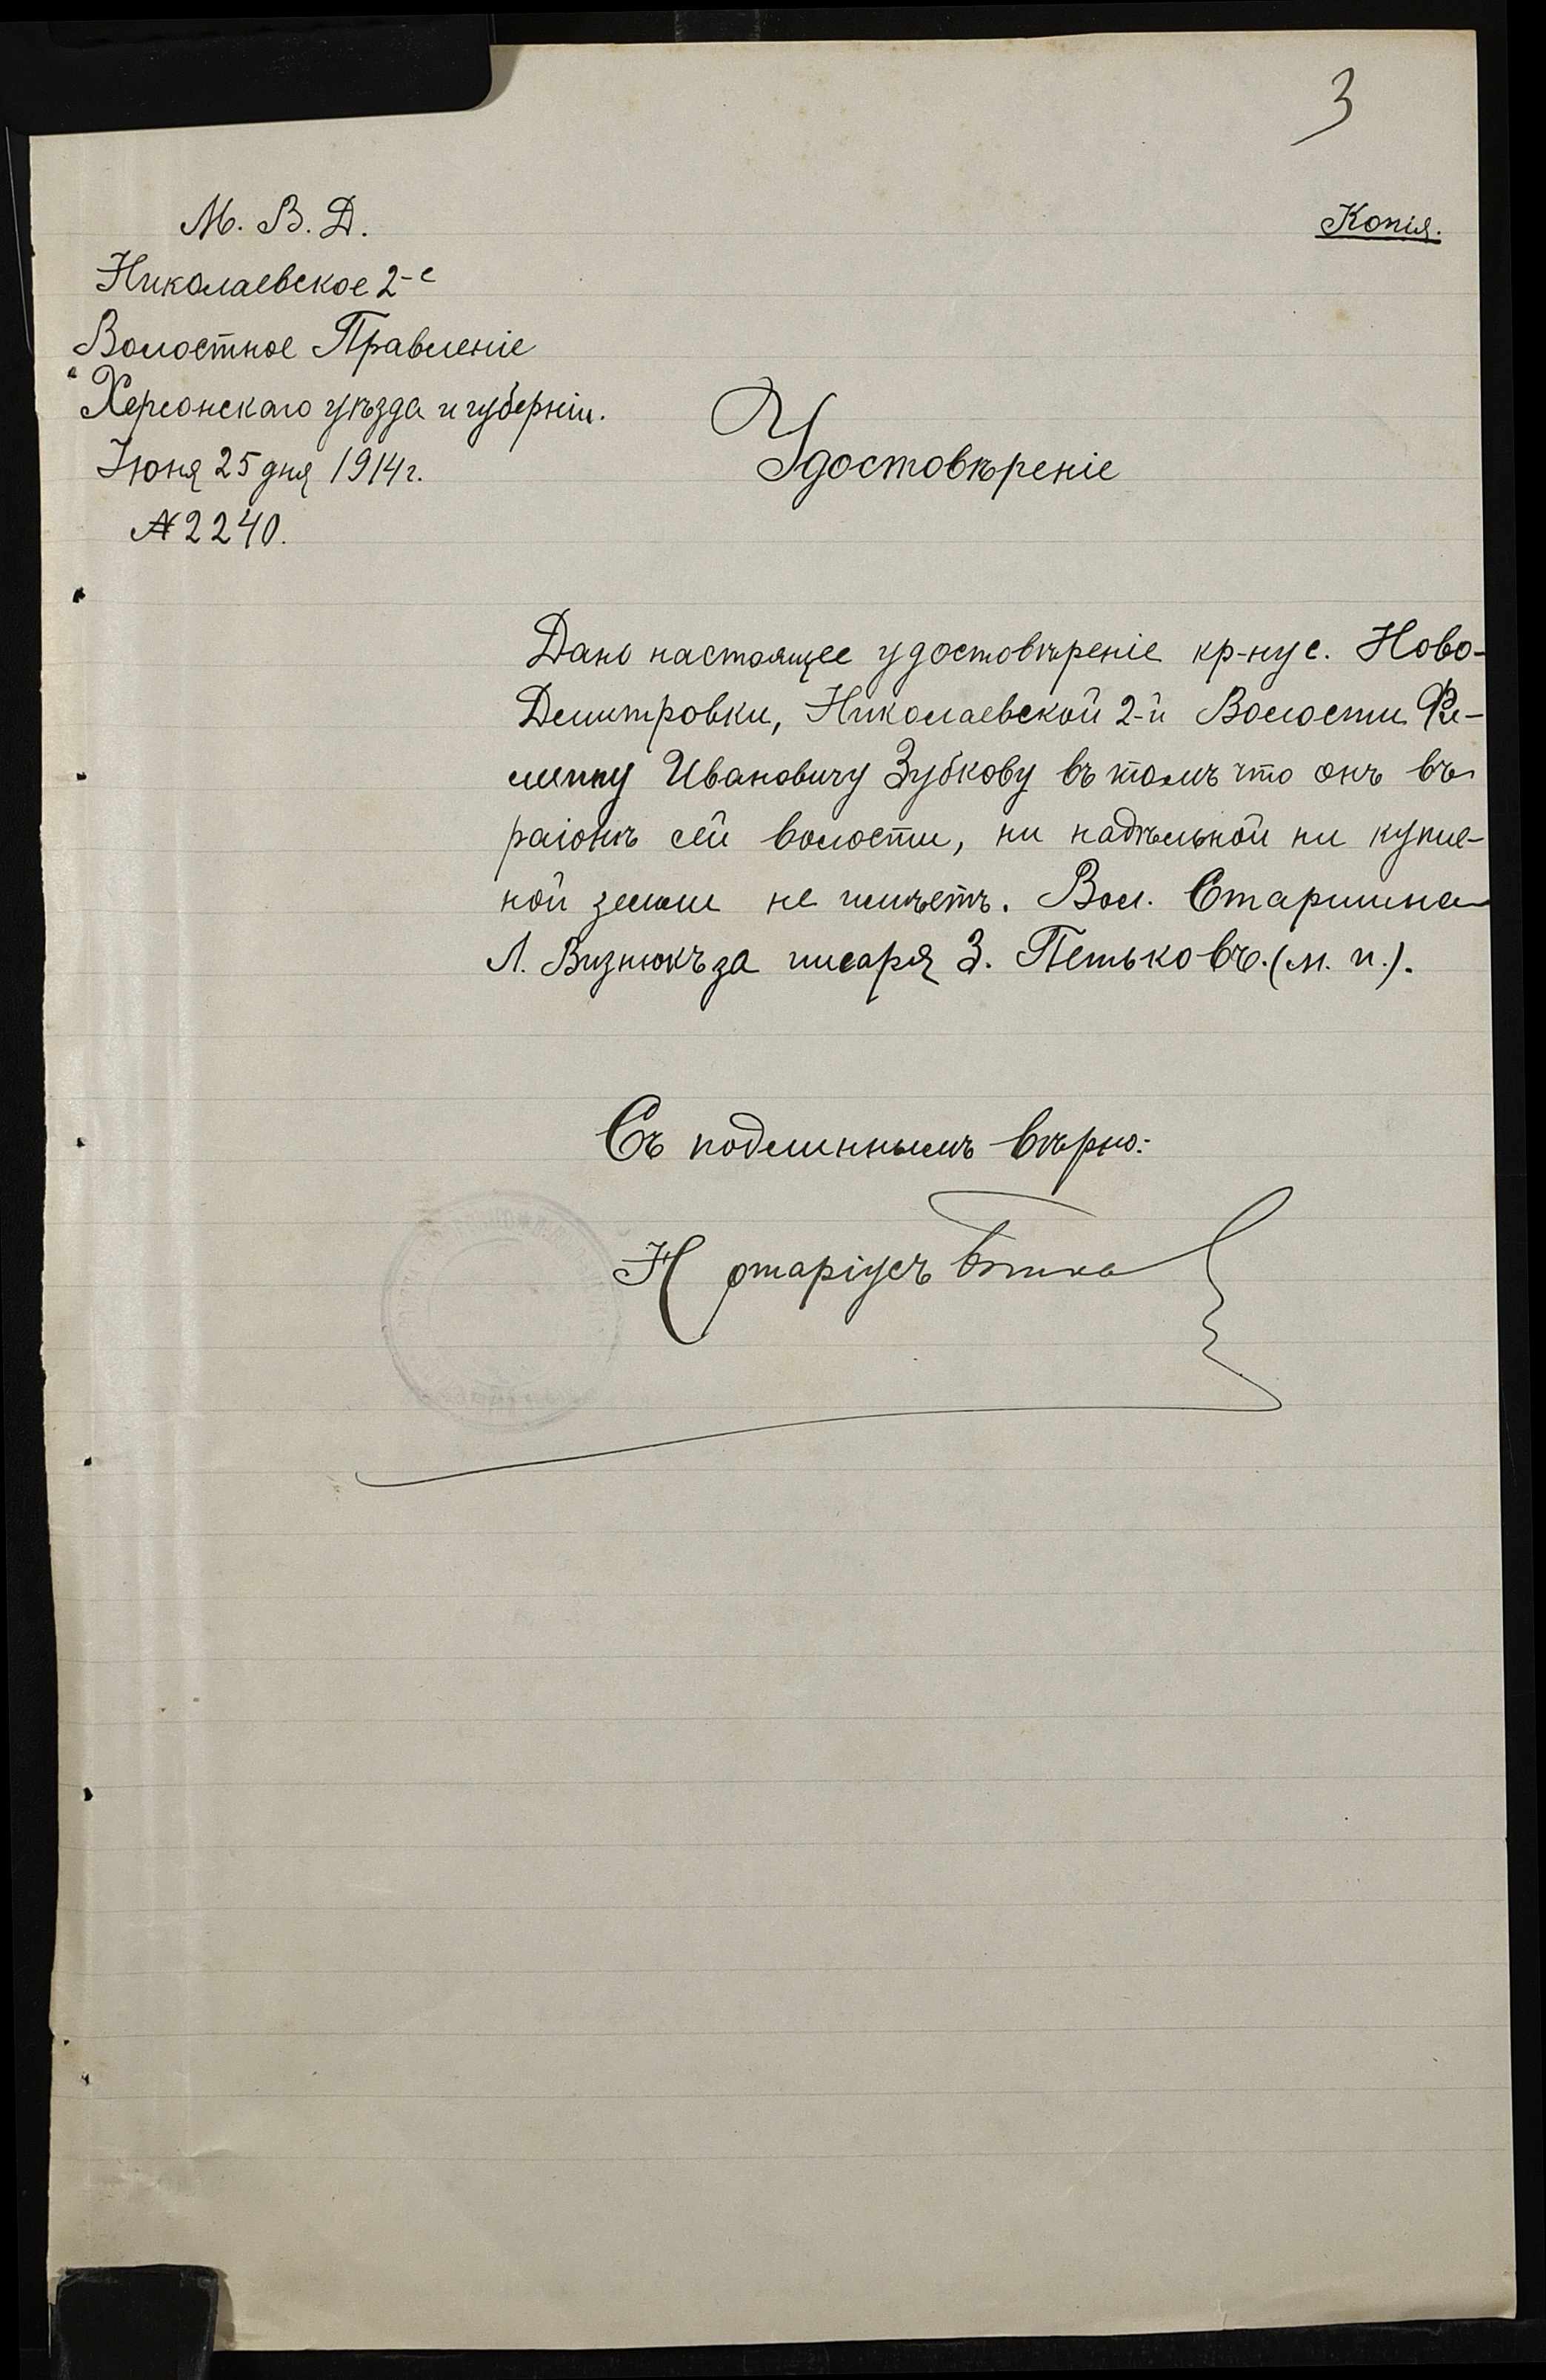 3
Копія.
М. В. Д.
Николаевское 2-е
Волостное Правленіе
Херсонскаго уѣзда и губерніи.
Іюня 25 дня 1914 г.
№ 2240.
Удостовѣреніе
Дано настоящее удостовѣреніе кр-ну с. Ново-
Демитровки, Николаевской 2-й Волости Фи-
липпу Ивановичу Зубкову въ томъ что онъ въ
раіонѣ сей волости, ни надѣльной ни куплен-
ной земли не имѣетъ. Вол. Старшина
Л. Визнюкъ за писаря З. Петьковъ. (м. п.).
Съ подлиннымъ вѣрно:
Нотаріусъ